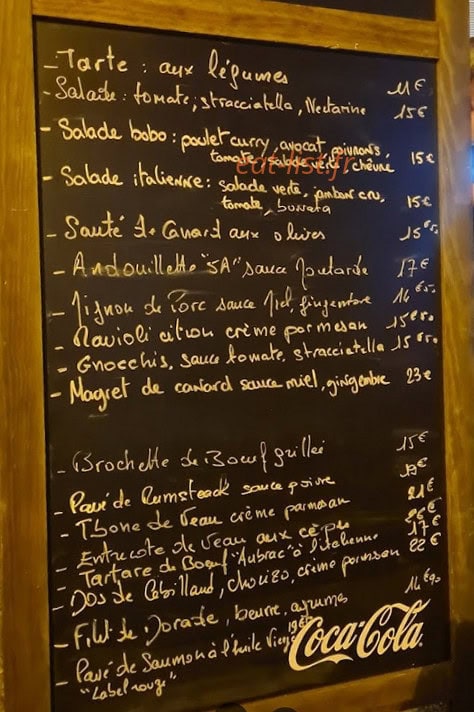 - Tarte : aux légumes 11€
- Salade : tomate, stracciatella, Nectarine 15€
- Salade bobo : poulet curry, avocat, poivrons,
tomate, salade verte, chèvre 15€
eat-list.fr
- Salade italienne : salade verte, jambon cru,
tomate, burrata 15€
- Sauté de Canard aux olives 15€50
- Andouillette "5A" sauce Moutarde 17€
- Mignon de Porc sauce Miel, gingembre 14€50
- Ravioli citron crème parmesan 15€50
- Gnocchis, sauce tomate, stracciatella 15€50
- Magret de canard sauce miel, gingembre 23€
- Brochette de Boeuf grillée 15€
- Pavé de Rumsteack sauce poivre 19€
- Tbone de Veau crème parmesan 21€
- Entrecote de Veau aux cèpes
- Tartare de Boeuf "Aubrac" à l'italienne 17€
- Dos de Cabillaud, chorizo, crème parmesan 22€
- Filet de Dorade, beurre, agrumes 14€90
- Pavé de Saumon à l'huile Vierge
"Label rouge"
Coca-Cola